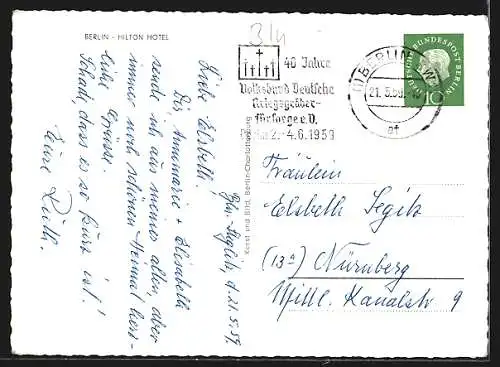 BERLIN - HILTON HOTEL
3/4
40 Jahre
Volksbund Deutsche
Kriegsgräber-
fürsorge e.V.
2.-4.6.1959
BERLIN
21.5.59
DEUTSCHE BUNDESPOST BERLIN
10
Kunst und Bild, Berlin-Charlottenburg
Bln. Steglitz, d. 21.5.59.
Liebe Elsbeth.
Dir, Annmarie + Elisabeth
sende ich aus meiner alten, aber
immer noch schönen Heimat herz-
liche Grüsse.
Schade, dass es so kurz ist!
Eure Ruth.
Fräulein
Elsbeth Segitz
(13a) Nürnberg
Mittl. Kanalstr. 9